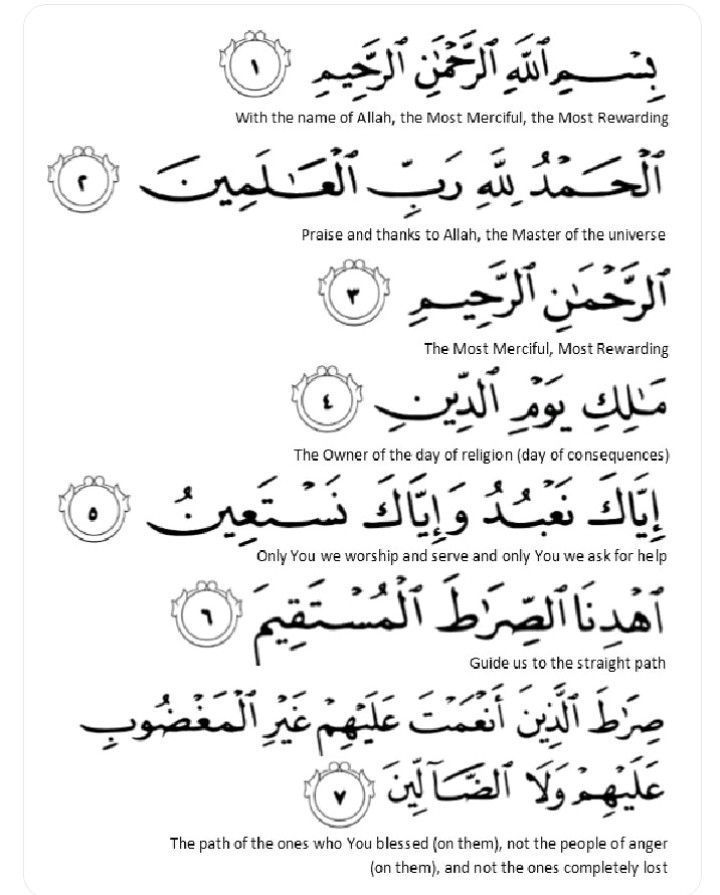 بِسْمِ ٱللَّهِ ٱلرَّحْمَٰنِ ٱلرَّحِيمِ ١
With the name of Allah, the Most Merciful, the Most Rewarding
ٱلْحَمْدُ لِلَّهِ رَبِّ ٱلْعَٰلَمِينَ ٢
Praise and thanks to Allah, the Master of the universe
ٱلرَّحْمَٰنِ ٱلرَّحِيمِ ٣
The Most Merciful, Most Rewarding
مَٰلِكِ يَوْمِ ٱلدِّينِ ٤
The Owner of the day of religion (day of consequences)
إِيَّاكَ نَعْبُدُ وَإِيَّاكَ نَسْتَعِينُ ٥
Only You we worship and serve and only You we ask for help
ٱهْدِنَا ٱلصِّرَٰطَ ٱلْمُسْتَقِيمَ ٦
Guide us to the straight path
صِرَٰطَ ٱلَّذِينَ أَنْعَمْتَ عَلَيْهِمْ غَيْرِ ٱلْمَغْضُوبِ
عَلَيْهِمْ وَلَا ٱلضَّآلِّينَ ٧
The path of the ones who You blessed (on them), not the people of anger
(on them), and not the ones completely lost